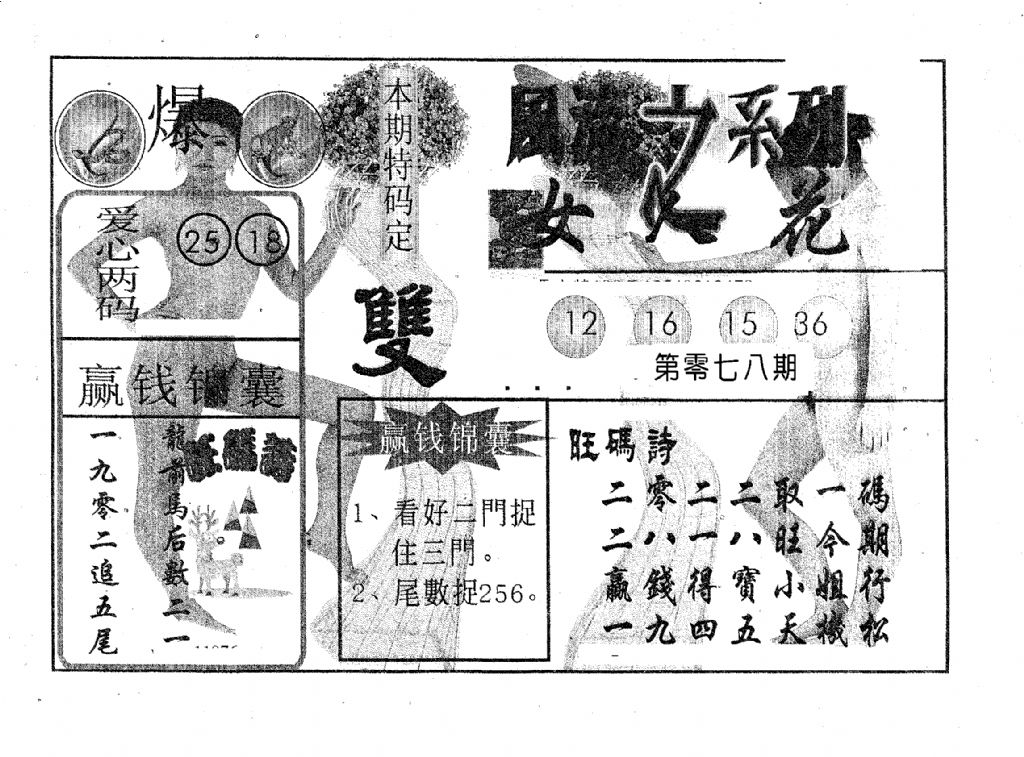 爆
爱心两码
25 18
赢钱锦囊
龍前馬后數二一
一九零二追五尾
本期特码定
雙
赢钱锦囊
1、看好二門捉
住三門。
2、尾數捉256。
系列
女人花
12 16 15 36
第零七八期
旺碼詩
二零二二取一碼
二八一八旺今期
贏錢得寶小姐行
一九四五天機松